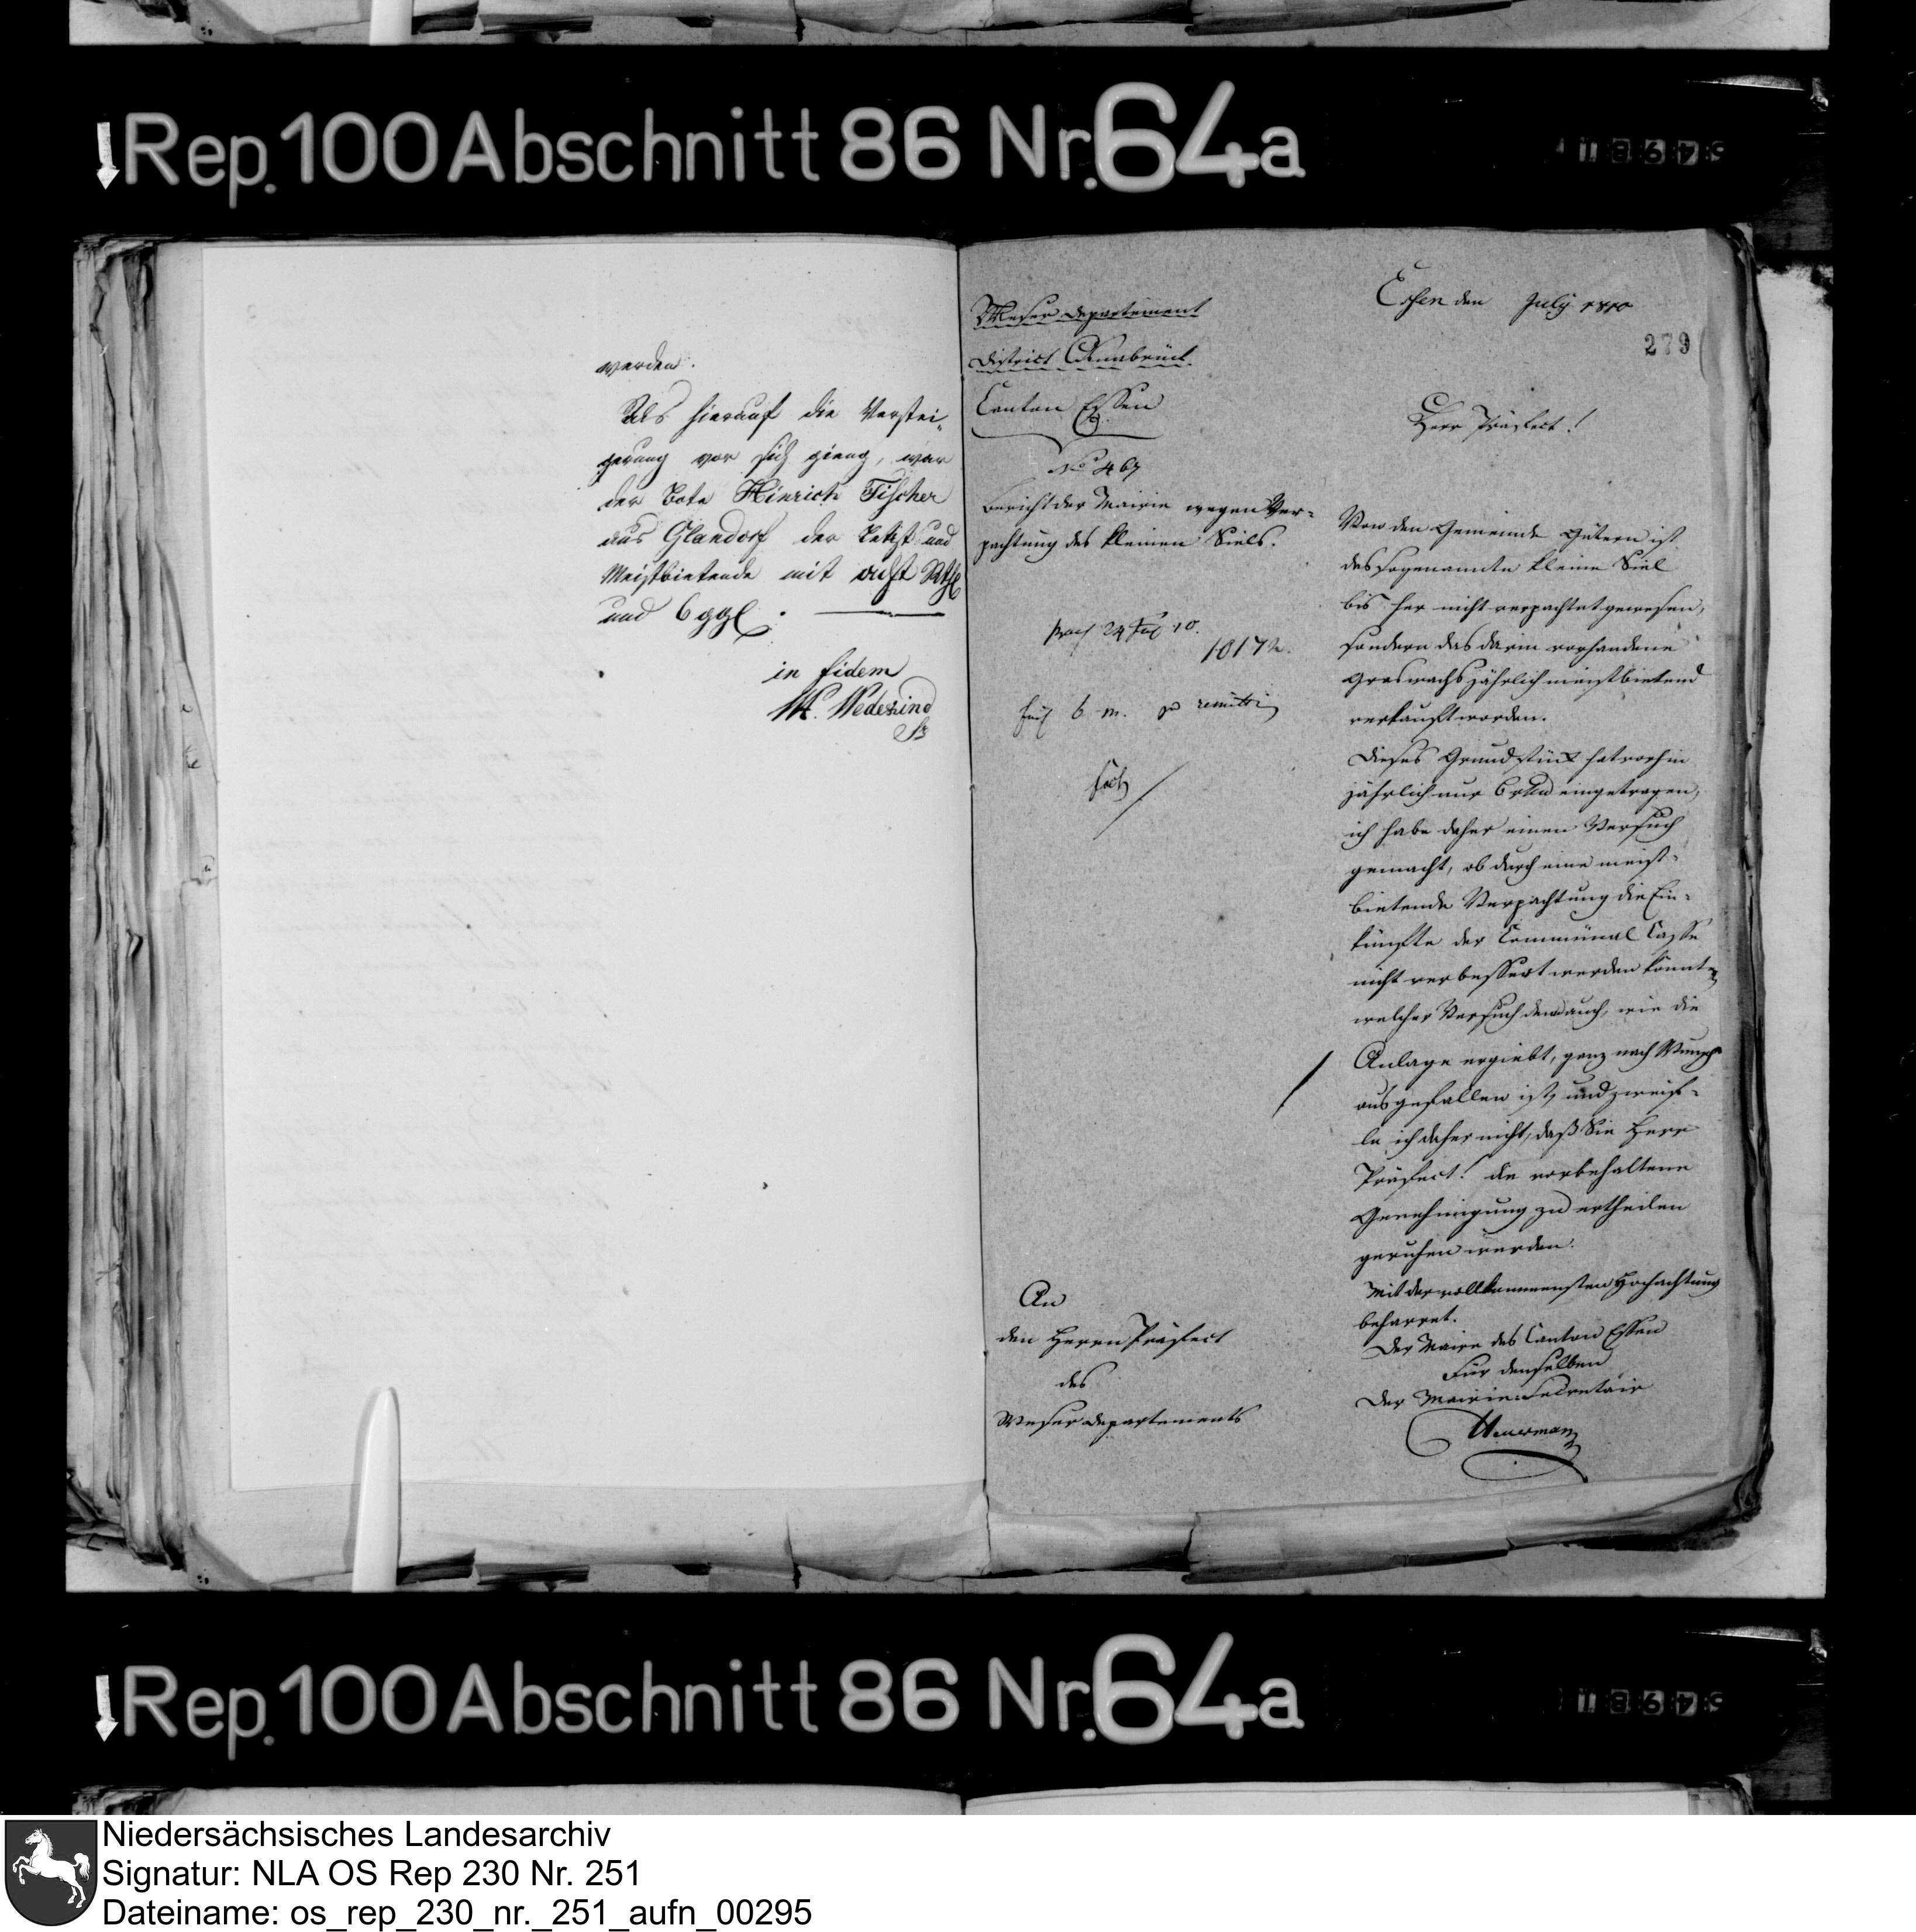 Rep. 100 Abschnitt 86 Nr. 64a
werden.
Als hierauf die Verstei„
gerung vor sich gieng, war
der Bote Hinrich Fischer
aus Glandorf der Letzt und
Meistbietende mit acht Rthl
und 6 ggl.
in fidem
W. Wedekind
Weser Departement
District Osnabrück.
Canton Essen
No 467
Bericht der Mairie wegen Ver-
pachtung des kleinen Siels.
24 Jul 10.
10172.
6 m.
An
den Herrn Präfect
des
Weser Departements
Essen den July 1810
279
Herr Präfect!
Von den Gemeinde Gütern ist
das sogenannte kleine Siel
bis her nicht verpachtet gewesen,
sondern das darin vorhandene
Graswachs jährlich meistbietend
verkauft worden.
Dieses Grundstück hat vorhin
jährlich nur 6 eingetragen,
ich habe daher einen Versuch
gemacht, ob durch eine meist-
bietende Verpachtung die Ein-
künfte der Communal Casse
nicht verbessert werden könnte,
welcher Versuch denn auch, wie die
Anlage ergiebt, ganz nach Wunsch
ausgefallen ist, und zweif-
le ich daher nicht, daß Sie Herr
Präfect! die vorbehaltene
Genehmigung zu ertheilen
geruhen werden.
Mit der vollkommensten Hochachtung
beharret.
Der Maire des Canton Essen
Für denselben
Der Mairiesecretair
Heuermann
Rep. 100 Abschnitt 86 Nr. 64a
Niedersächsisches Landesarchiv
Signatur: NLA OS Rep 230 Nr. 251
Dateiname: os_rep_230_nr._251_aufn_00295